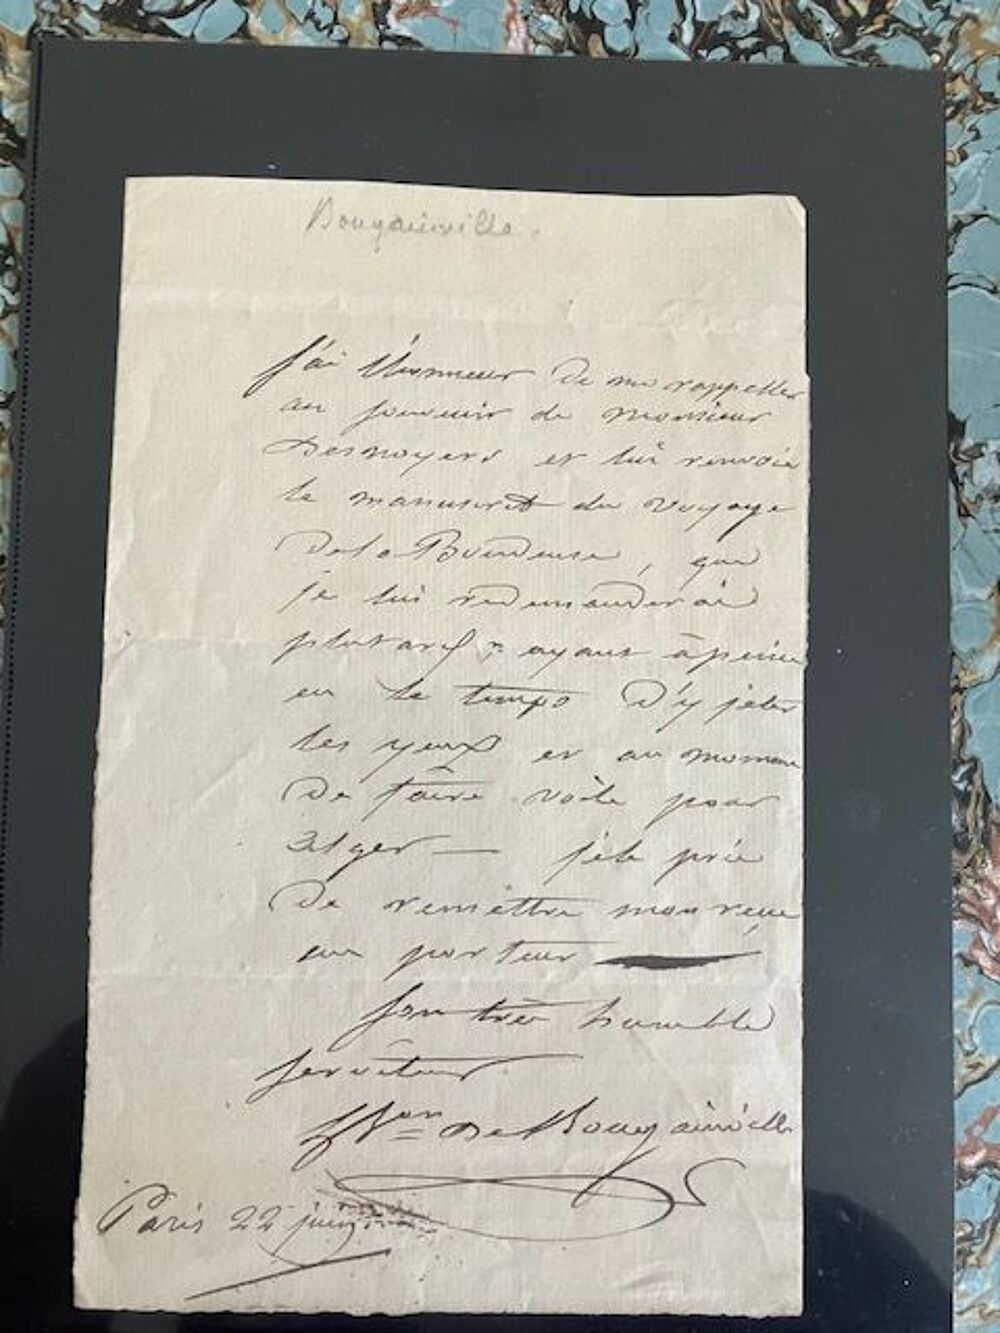 Bougainville.
J'ai l'honneur de me rappeller
au souvenir de Monsieur
Desnoyers et lui renvoie
le manuscrit du voyage
De la Boudeuse, que
je lui redemanderai
plutard n'ayant à peine
eu le temps D'y jeter
les yeux et au moment
De faire voile pour
Alger — je le prie
De remettre mon reçu
au porteur
Son très humble
serviteur
Bon De Bougainville
Paris 22 juin